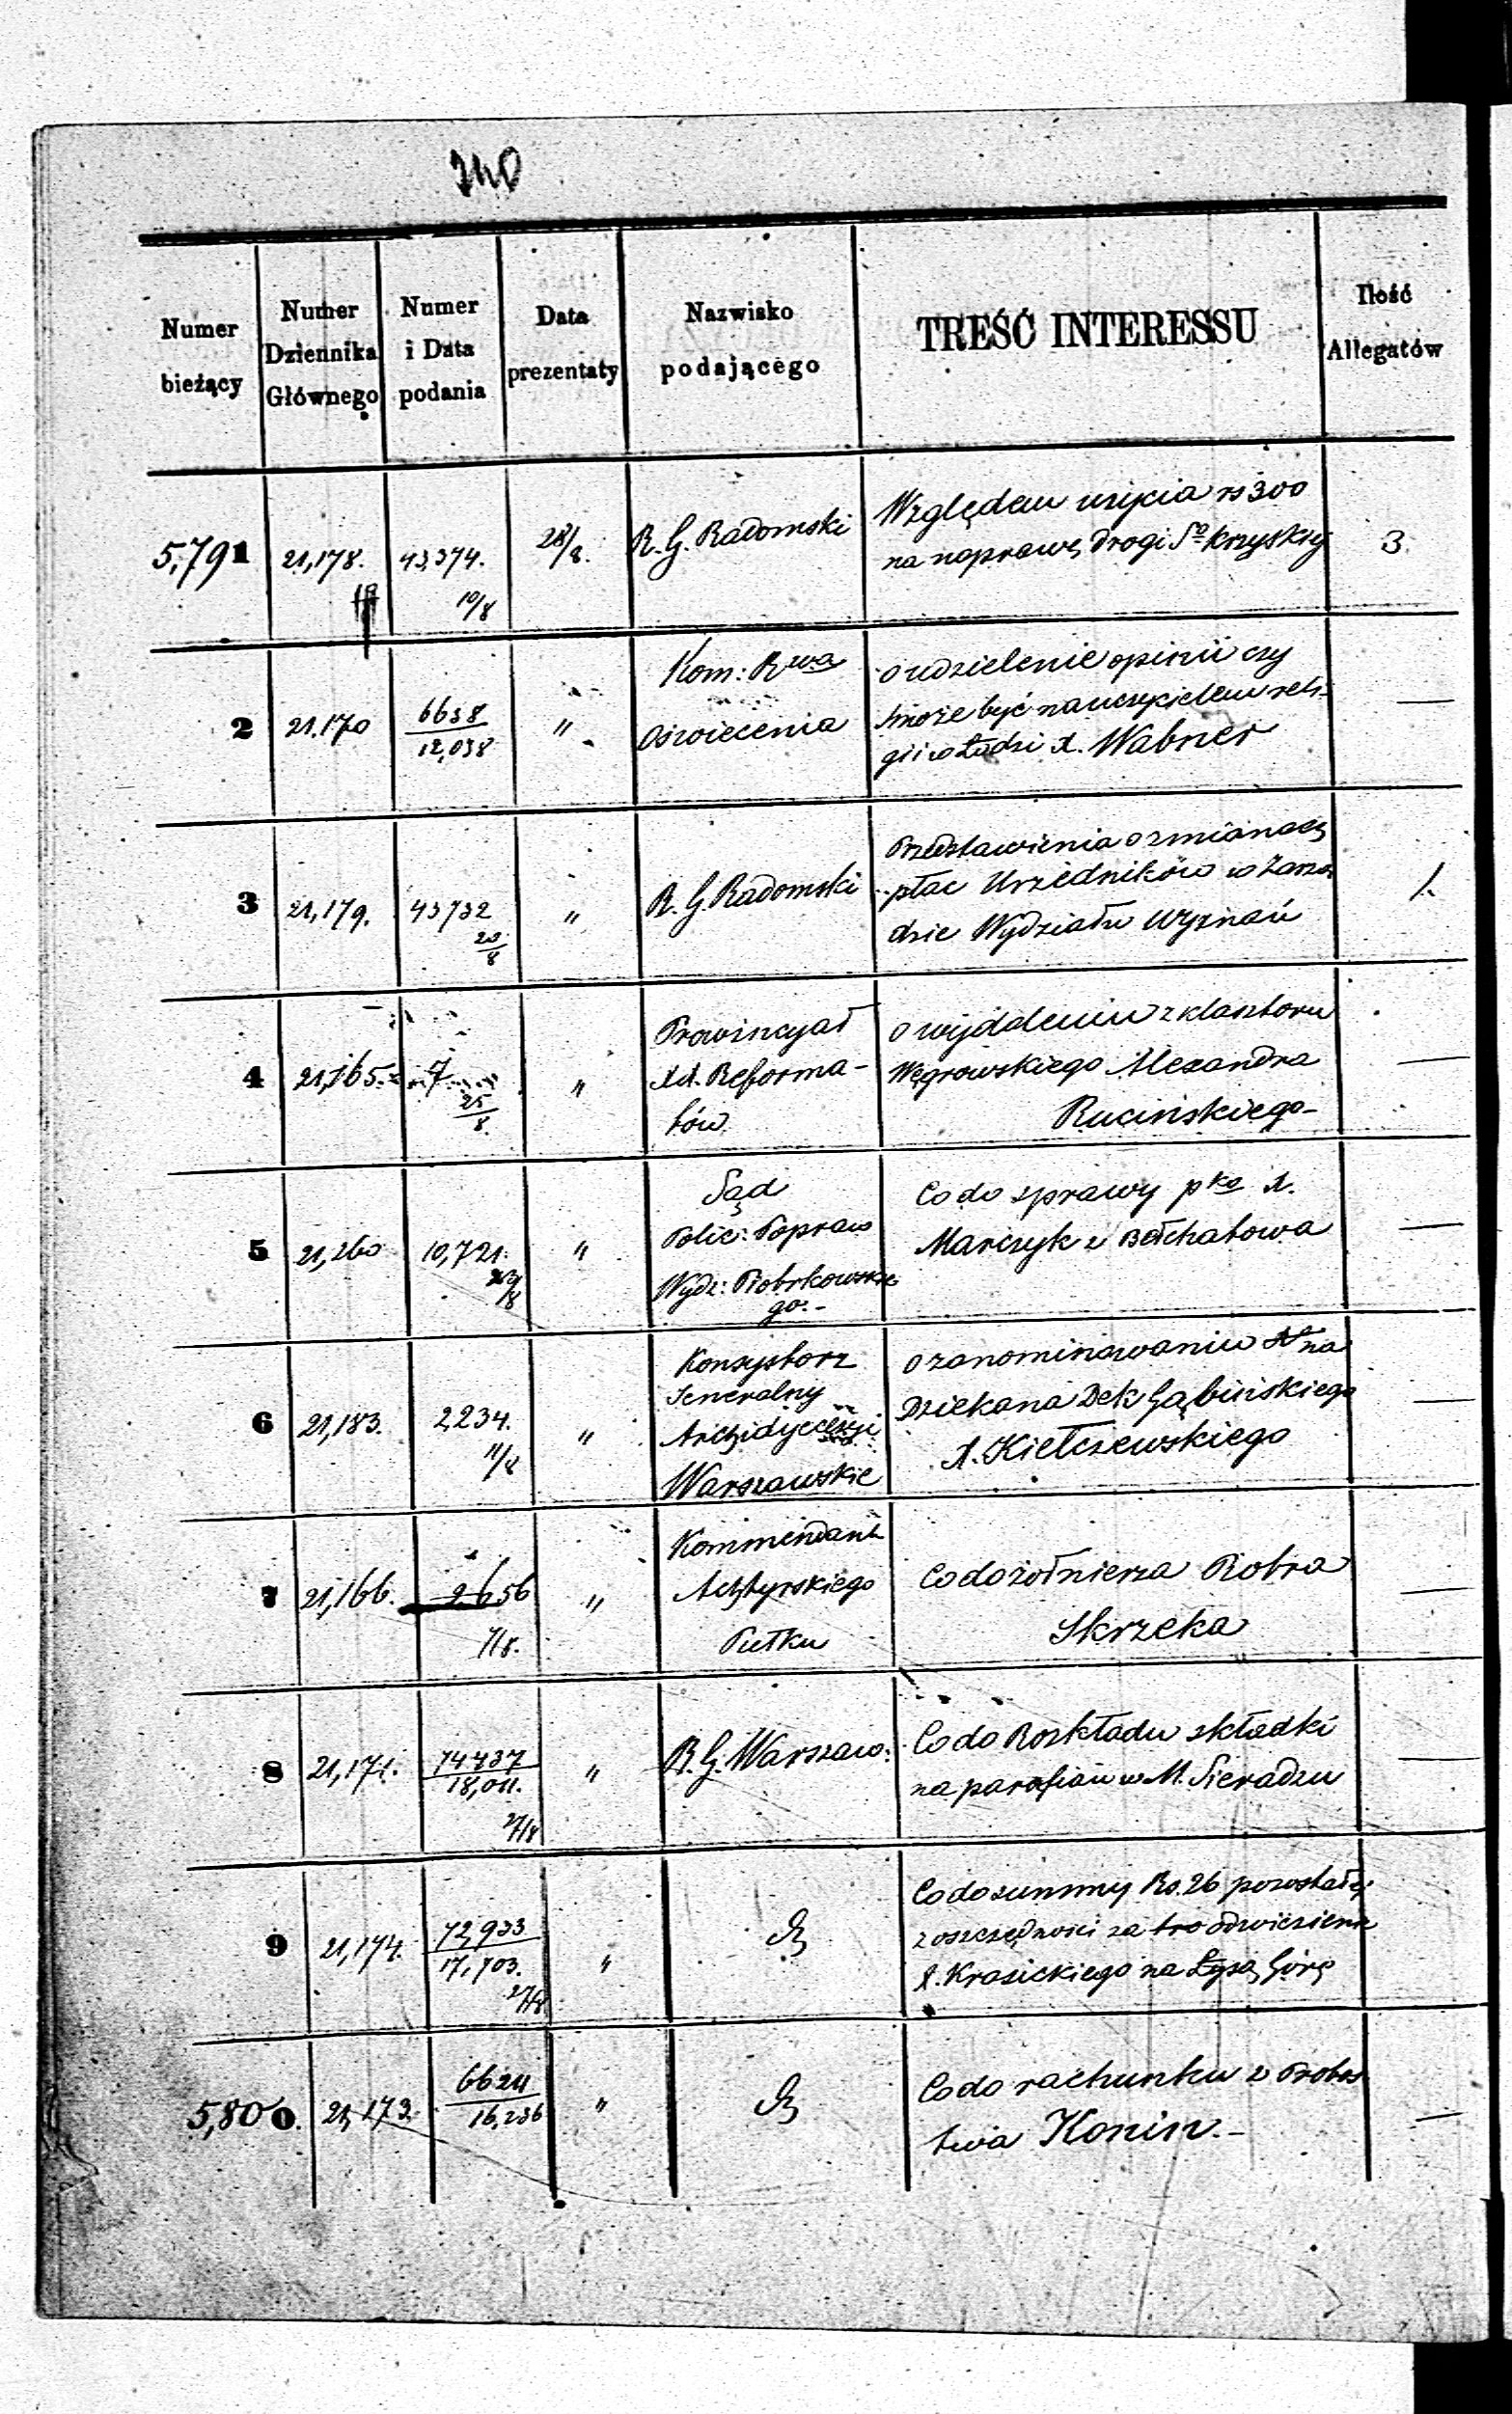 240
Numer bieżący
Numer Dziennika Głównego
Numer i Data podania
Data prezentaty
Nazwisko podającego
TREŚĆ INTERESSU
Ilość Allegatów
5,791
21,178.
43,374.
10/8
28/8.
R. G. Radomski
Względem użycia rs 300
na naprawę drogi Sto Krzyskiej
3
2
21.170
6638
12,038
"
Kom: Rwa
Oświecenia
o udzielenie opinii czy
może być nauczycielem reli-
gii w Łodzi X. Wabner
—
3
21,179.
43732
20/8
"
R. G. Radomski
Przedstawienia o zmianach
płac Urzędników w Zarzą
dzie Wydziału Wyznań
1.
4
21,165.
7
25/8.
"
Prowincyał
XX. Reforma-
tów
o wydaleniu z klasztoru
Węgrowskiego Alexandra
Rucińskiego-
—
5
21,260
10,721.
/8
"
Sąd
Polic: Popraw
Wydz: Piotrkowskie
go.-
Co do sprawy pko X.
Marczyk z Bełchatowa
—
6
21,183.
2,234.
11/8
"
Konsystorz
Jeneralny
Archidyecezyi
Warszawskie
o zanominowaniu na
Dziekana Dek Gąbińskiego
X. Kiełczewskiego
—
7
21,166.
2656
7/8.
"
Kommendant
Achtyrskiego
Pułku
Co do żołnierza Piotra
Skrzeka
—
8
21,171.
74437
18,011.
27/8
"
R. G. Warszaw:
Co do Rozkładu składki
na parafian w M. Sieradzu
—
9
21,174.
72,933
17,703.
27/8
"
Co do summy Rs. 26 pozostałej
z oszczędności za tro odwiezienie
X. Krasickiego na Łysą Górę
5,800.
21,173.
6624
16,236
"
Co do rachunku z Probos
twa Konin.-
—